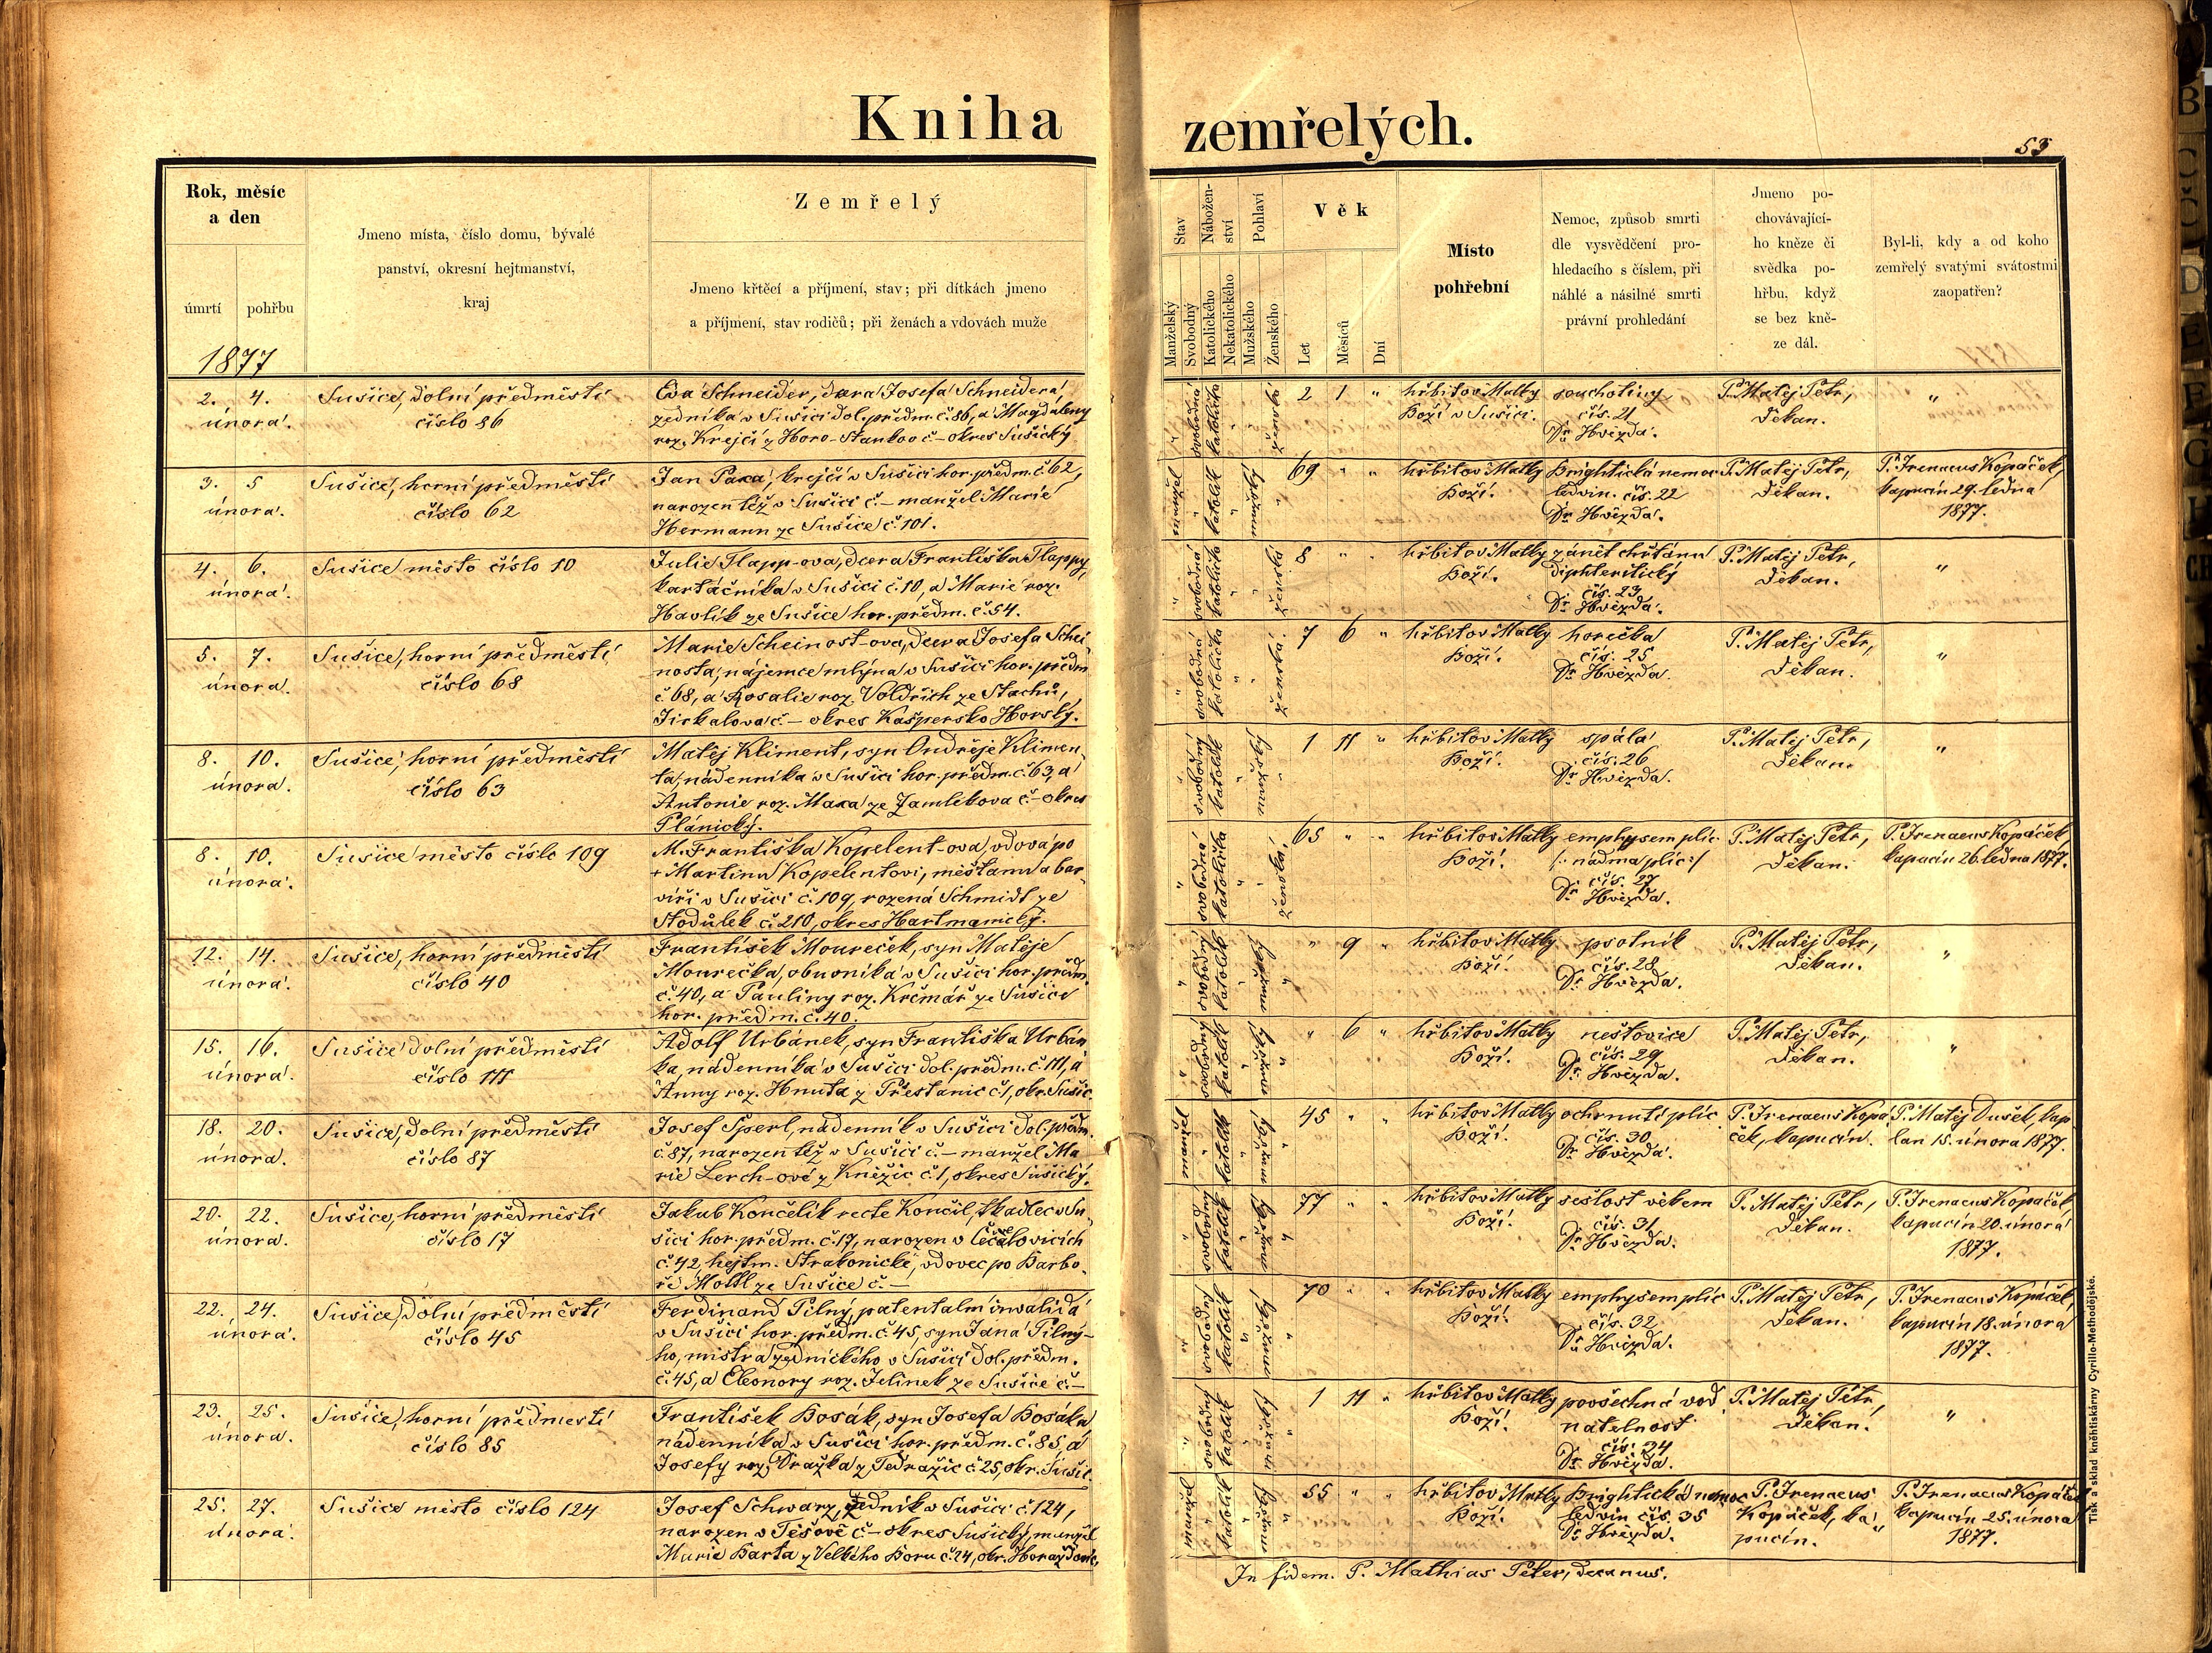 Kniha zemřelých.
53
Rok, měsíc
a den
úmrtí pohřbu
1877
Jmeno místa, číslo domu, bývalé
panství, okresní hejtmanství,
kraj
Zemřelý
Jmeno křtěcí a příjmení, stav; při dítkách jmeno
a příjmení, stav rodičů; při ženách a vdovách muže
Stav
Manželský
Svobodný
Nábožen-
ství
Katolického
Nekatolického
Pohlaví
Mužského
Ženského
Věk
Let
Měsíců
Dní
Místo
pohřební
Nemoc, způsob smrti
dle vysvědčení pro-
hledacího s číslem, při
náhlé a násilné smrti
právní prohledání
Jmeno po-
chovávající-
ho kněze či
svědka po-
hřbu, když
se bez kně-
ze dál.
Byl-li, kdy a od koho
zemřelý svatými svátostmi
zaopatřen?
2. 4.
února.
Sušice, dolní předměstí
číslo 86
Eva Schneider, dcera Josefa Schneidera,
zedníka v Sušici dol. předm. č. 86, a Magdaleny
roz. Krejčí z Horo-Stankov č – okres Sušický
" svobodná katolička " " ženská
2 1 "
hřbitov Matky
Boží v Sušici.
souchotiny
čís. 21
Dr. Hvězda.
P. Matěj Petr,
děkan.
"
3. 5
února.
Sušice, horní předměstí
číslo 62
Jan Paxa, krejčí v Sušici hor. předm. č. 62,
narozen též v Sušici č. – manžel Marie
Hermann ze Sušice č. 101.
manžel " katolík " mužský "
69 " "
hřbitov Matky
Boží.
Brightická nemoc
ledvin. čís. 22
Dr. Hvězda.
P. Matěj Petr,
děkan.
P. Irenaeus Kopáček,
kapucín 29. ledna
1877.
4. 6.
února.
Sušice město číslo 10
Julie Tlapp-ova, dcera Františka Tlappy,
kartáčníka v Sušici č. 10, a Marie roz.
Havlík ze Sušice hor. předm. č. 54.
" svobodná katolička " " ženská
8 " "
hřbitov Matky
Boží.
zánět chřtánu
diphteritický
čís. 23
Dr. Hvězda.
P. Matěj Petr,
děkan.
"
5. 7.
února.
Sušice, horní předměstí
číslo 68
Marie Scheinost-ova, dcera Josefa Schei-
nosta, nájemce mlýna v Sušici hor. předm
č 68, a Rosalie roz. Voldřich ze Stachů,
Jirkalova č – okres Kašpersko Horský.
" svobodná katolička " " ženská.
7 6 "
hřbitov Matky
Boží.
horečka
čís. 25
Dr. Hvězda.
P. Matěj Petr,
děkan.
"
8. 10.
února.
Sušice, horní předměstí
číslo 63
Matěj Kliment, syn Ondřeje Klimen-
ta, nádenníka v Sušici hor. předm. č. 63, a
Antonie roz. Maxa ze Zamlekova č – okres
Plánický.
" svobodný katolík " mužský "
1 11 "
hřbitov Matky
Boží.
spála
čís. 26
Dr. Hvězda.
P. Matěj Petr,
děkan.
"
8. 10.
února.
Sušice město číslo 109
M. Františka Kopelent-ova, vdova po
+ Martinu Kopelentovi, měšťanu a bar-
víři v Sušici č. 109, rozená Schmidt ze
Stodůlek č. 210, okres Hartmanický.
" svobodná katolička " " ženská,
65 " "
hřbitov Matky
Boží.
emphysem plic
/: nádma plic :/
čís. 27
Dr. Hvězda.
P. Matěj Petr,
děkan.
P. Irenaeus Kopáček,
kapucín 26. ledna 1877.
12. 14.
února.
Sušice, horní předměstí
číslo 40
František Moureček, syn Matěje
Mourečka, obuvníka v Sušici hor. předm.
č. 40, a Pauliny roz. Krčmář ze Sušice
hor. předm. č. 40.
" svobodný katolík " mužský "
" 9 "
hřbitov Matky
Boží.
psotník
čís. 28
Dr. Hvězda.
P. Matěj Petr,
děkan.
"
15. 16.
února.
Sušice dolní předměstí
číslo 111
Adolf Urbánek, syn Františka Urbán-
ka, nádenníka v Sušici dol. předm. č. 111, a
Anny roz. Hnuta z Třestanic č. 1, okr. Sušic.
" svobodný katolík " mužský "
" 6 "
hřbitov Matky
Boží.
neštovice
čís. 29
Dr. Hvězda.
P. Matěj Petr,
děkan.
"
18. 20.
února.
Sušice, dolní předměstí
číslo 87
Josef Šperl, nádenník v Sušici dol. předm.
č. 87, narozen též v Sušici č. – manžel Ma-
rie Lerch-ové z Kněžic č. 1, okres Sušický.
manžel " katolík " mužský "
45 " "
hřbitov Matky
Boží.
ochrnutí plic
čís. 30
Dr. Hvězda.
P. Irenaeus Kopá-
ček, kapucín.
P. Matěj Dušek, kap-
lan 15. února 1877.
20. 22.
února.
Sušice, horní předměstí
číslo 17
Jakub Končelík recte Končil, tkadlec v Su-
šici hor. předm. č. 17, narozen v
č. 42, hejtm. Strakonické, vdovec po Barbo-
ře Moltl ze Sušice č. –
" svobodný katolík " mužský "
77 " "
hřbitov Matky
Boží.
sešlost věkem
čís. 31
Dr. Hvězda.
P. Matěj Petr,
děkan.
P. Irenaeus Kopáček,
kapucín 20. února
1877.
22. 24.
února.
Sušice, dolní předměstí
číslo 45
Ferdinand Pilný, patentalní invalida
v Sušici hor. předm. č. 45, syn Jana Pilný-
ho, mistra zednického v Sušici dol. předm.
č. 45, a Eleonory roz. Jelínek ze Sušice č. –
" svobodný katolík " mužský "
70 " "
hřbitov Matky
Boží.
emphysem plic
čís. 32
Dr. Hvězda.
P. Matěj Petr,
děkan.
P. Irenaeus Kopáček,
kapucín 18. února
1877.
23. 25.
února.
Sušice, horní předmestí
číslo 85
František Bosák, syn Josefa Bosáka,
nádenníka v Sušici hor. předm. č. 85, a
Josefy roz. Dražka z Tedražic č 25, okr. Sušic.
" svobodný katolík " mužský "
1 11 "
hřbitov Matky
Boží.
povšechná vod-
natelnost
čís. 24
Dr. Hvězda.
P. Matěj Petr,
děkan.
"
25. 27.
února.
Sušice město číslo 124
Josef Schwarz, zedník v Sušici č. 124,
narozen v Těšově č – okres Sušický, manžel
Marie Barta z Velkého Boru č. 24, okr. Horažďovic,
manžel " katolík " mužský "
55 " "
hřbitov Matky
Boží.
Brightická nemoc
ledvin čís. 35
Dr. Hvězda.
P. Irenaeus
Kopáček, ka-
pucín.
P. Irenaeus Kopáček
kapucín 25. února
1877.
In fidem. P. Mathias Peter, decanus.
Tisk a sklad kněhtiskárny Cyrillo-Methodějské.